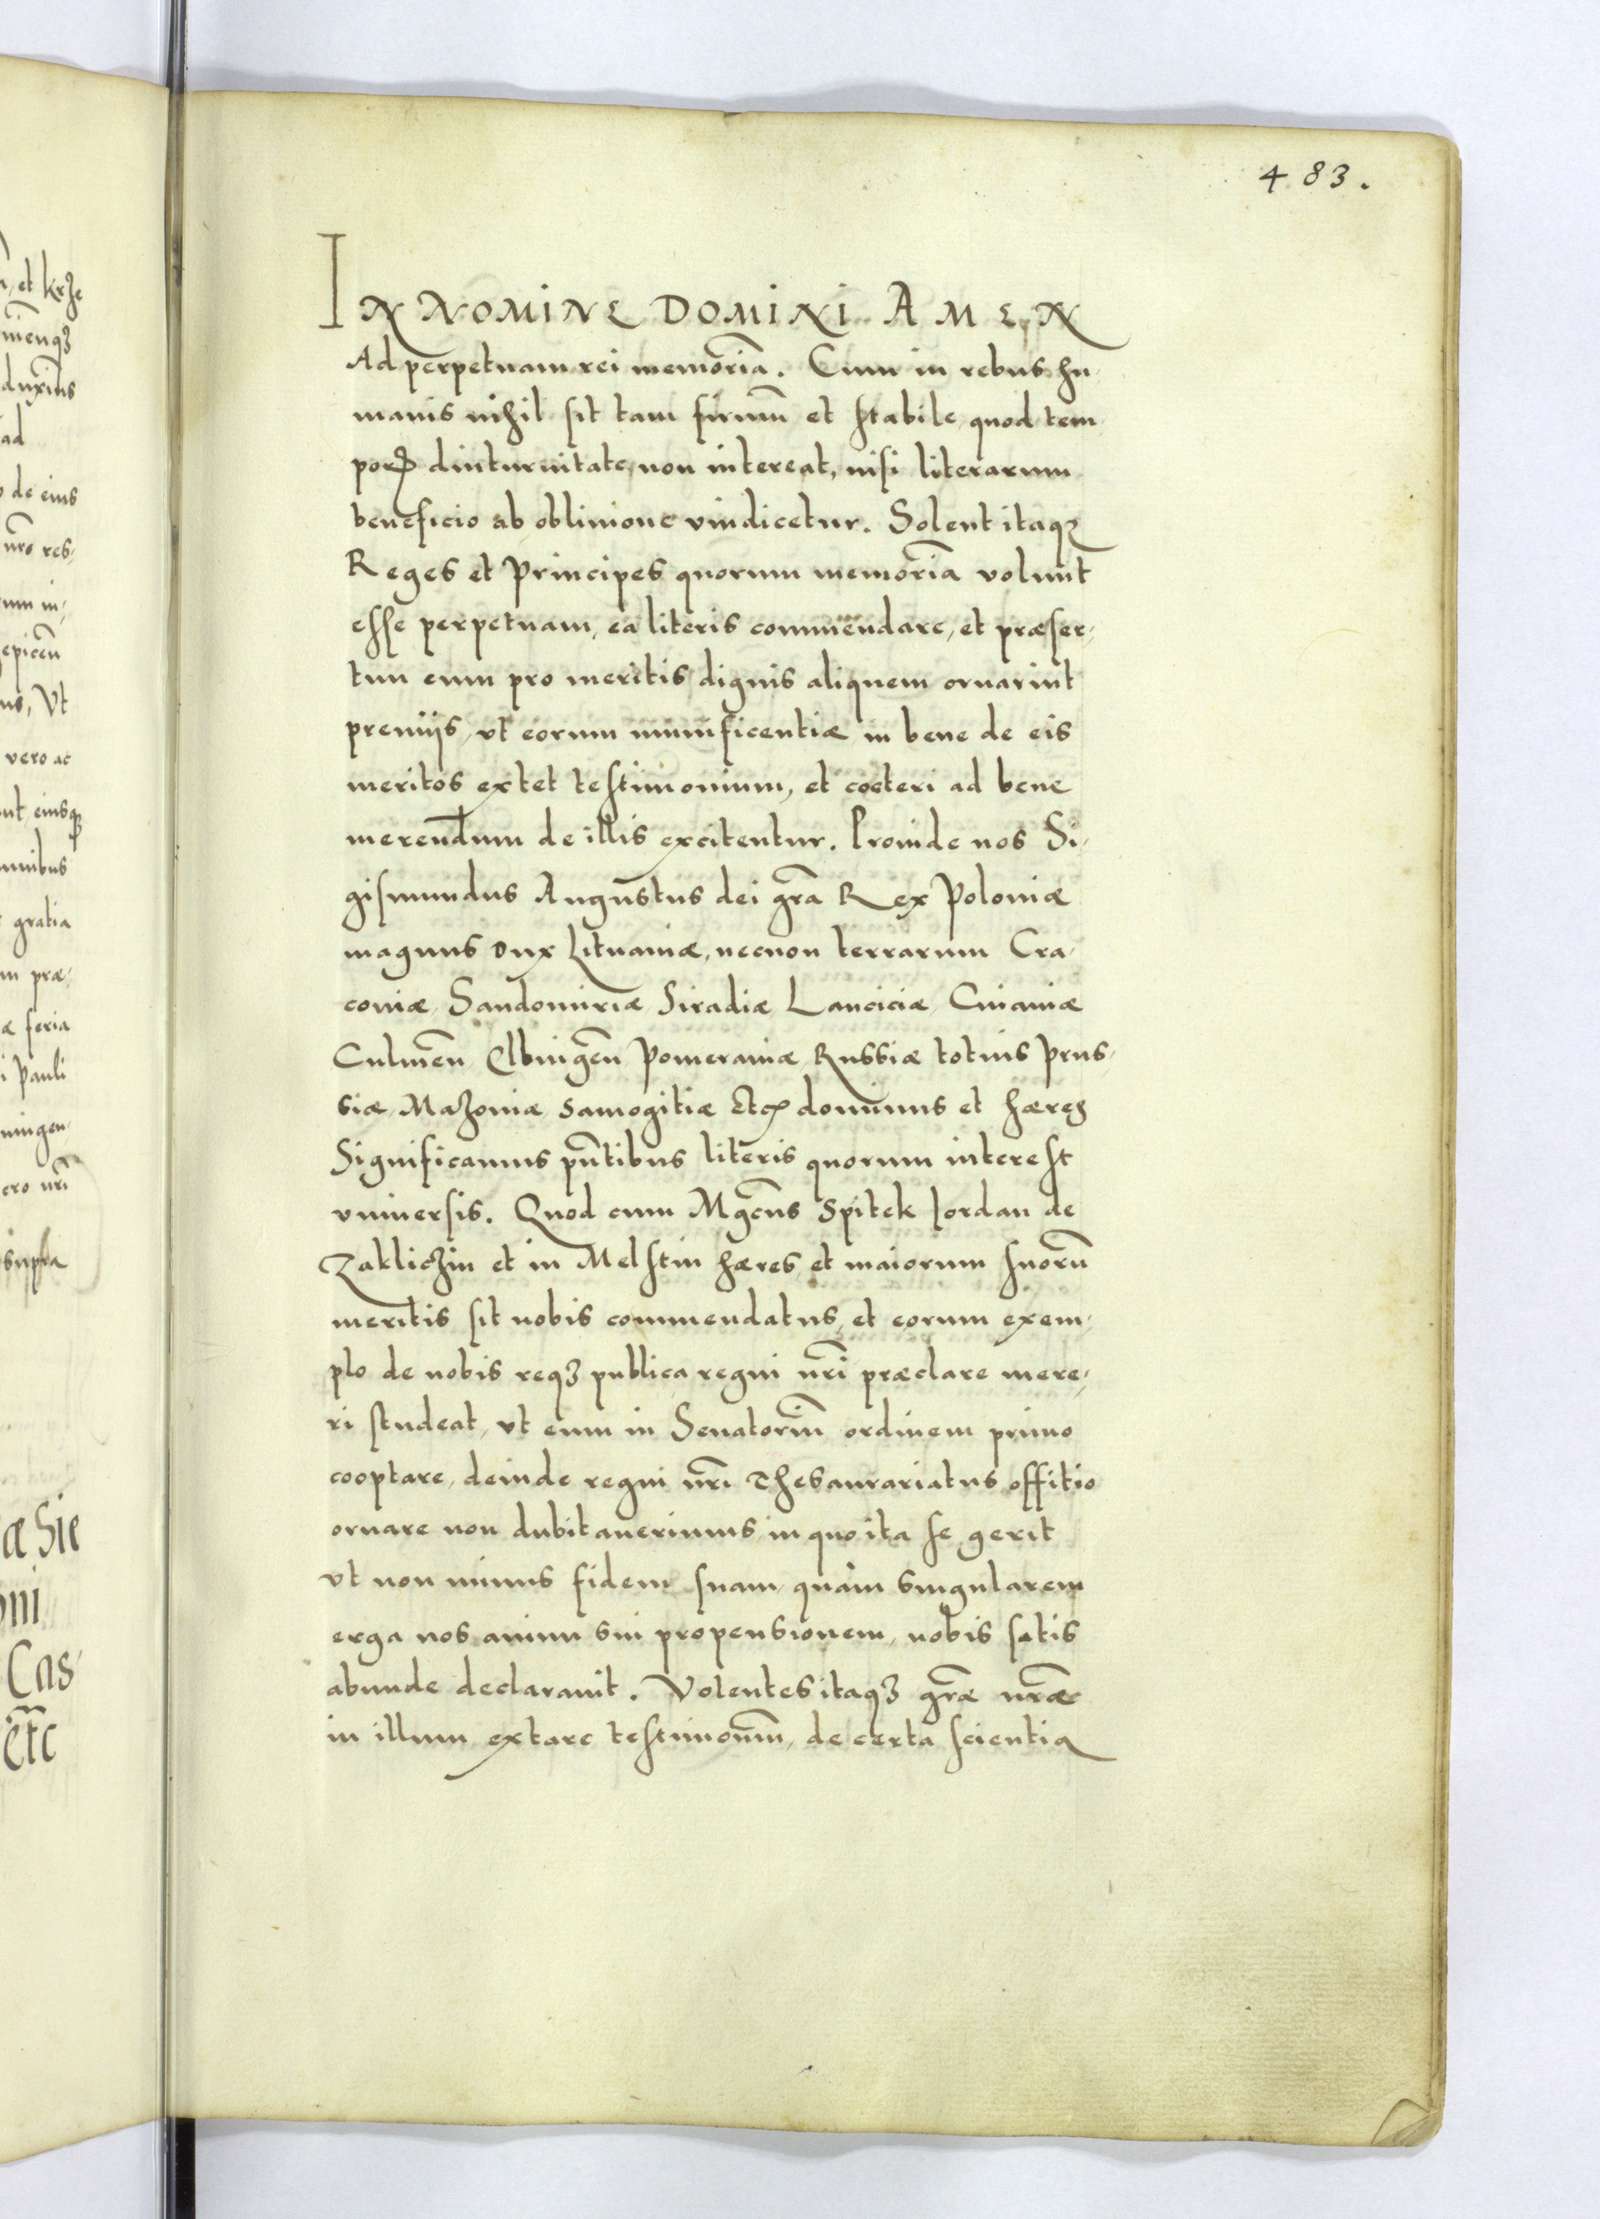 483.
IN NOMINE DOMINI AMEN
Ad perpetuam rei memoria͂. Cum in rebus hu-
manis nihil sit tam firmu͂ et stabile, quod tem-
porꝭ diuturnitate, non intereat, nisi literarum
beneficio ab obliuione vindicetur. Solent itaqꝫ
Reges et Principes quorum memoria͂ volunt
esse perpetuam, ea literis commendare, et præser-
tim cum pro meritis dignis aliquem ornarint
premijs, vt eorum munificentiæ in bene de eis
meritos extet testimonium, et cæteri ad bene
merendum de illis excitentur. Proinde nos Si-
gismundus Augustus dei gr͂a Rex Poloniæ
magnus Dux Lituaniæ, necnon terrarum Cra-
couiæ, Sandomiriæ Siradiæ Lanciciæ, Cuiauiæ
Culmen͂ Elbingen͂ Pomeraniæ Russiæ totius Prus-
siæ, Mazouiæ Samogitiæ Etcꝭ dominus et hæres
Significamus pn͂tibus literis quorum interest
vniuersis. Quod cum Mgcus͂ Spitek Iordan de
Zakliczin et in Melstin hæres et maiorum suoru͂
meritis sit nobis commendatus, et eorum exem-
plo de nobis reqꝫ publica regni nr͂i præclare mere-
ri studeat, vt eum in Senatoriu͂ ordinem primo
cooptare, deinde regni nr͂i Thesaurariatus offitio
ornare non dubitauerimus, in quo ita se gerit
vt non minus fidem suam, quàm singularem
erga nos animi sui propensionem, nobis satis
abunde declarauit. Volentes itaqꝫ gr͂æ nr͂æ
in illum extare testimoniu͂, de certa scientia